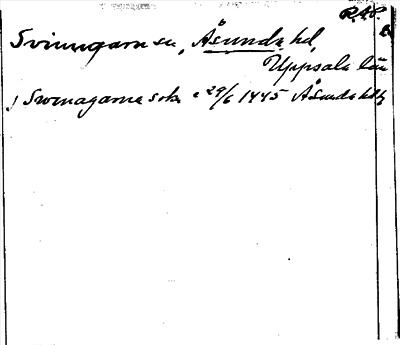 R.A.P.
Svinngarn sn, Åsunda hd,
Uppsala län
j Swinagarna sokn 29/6 1445 Åsunda